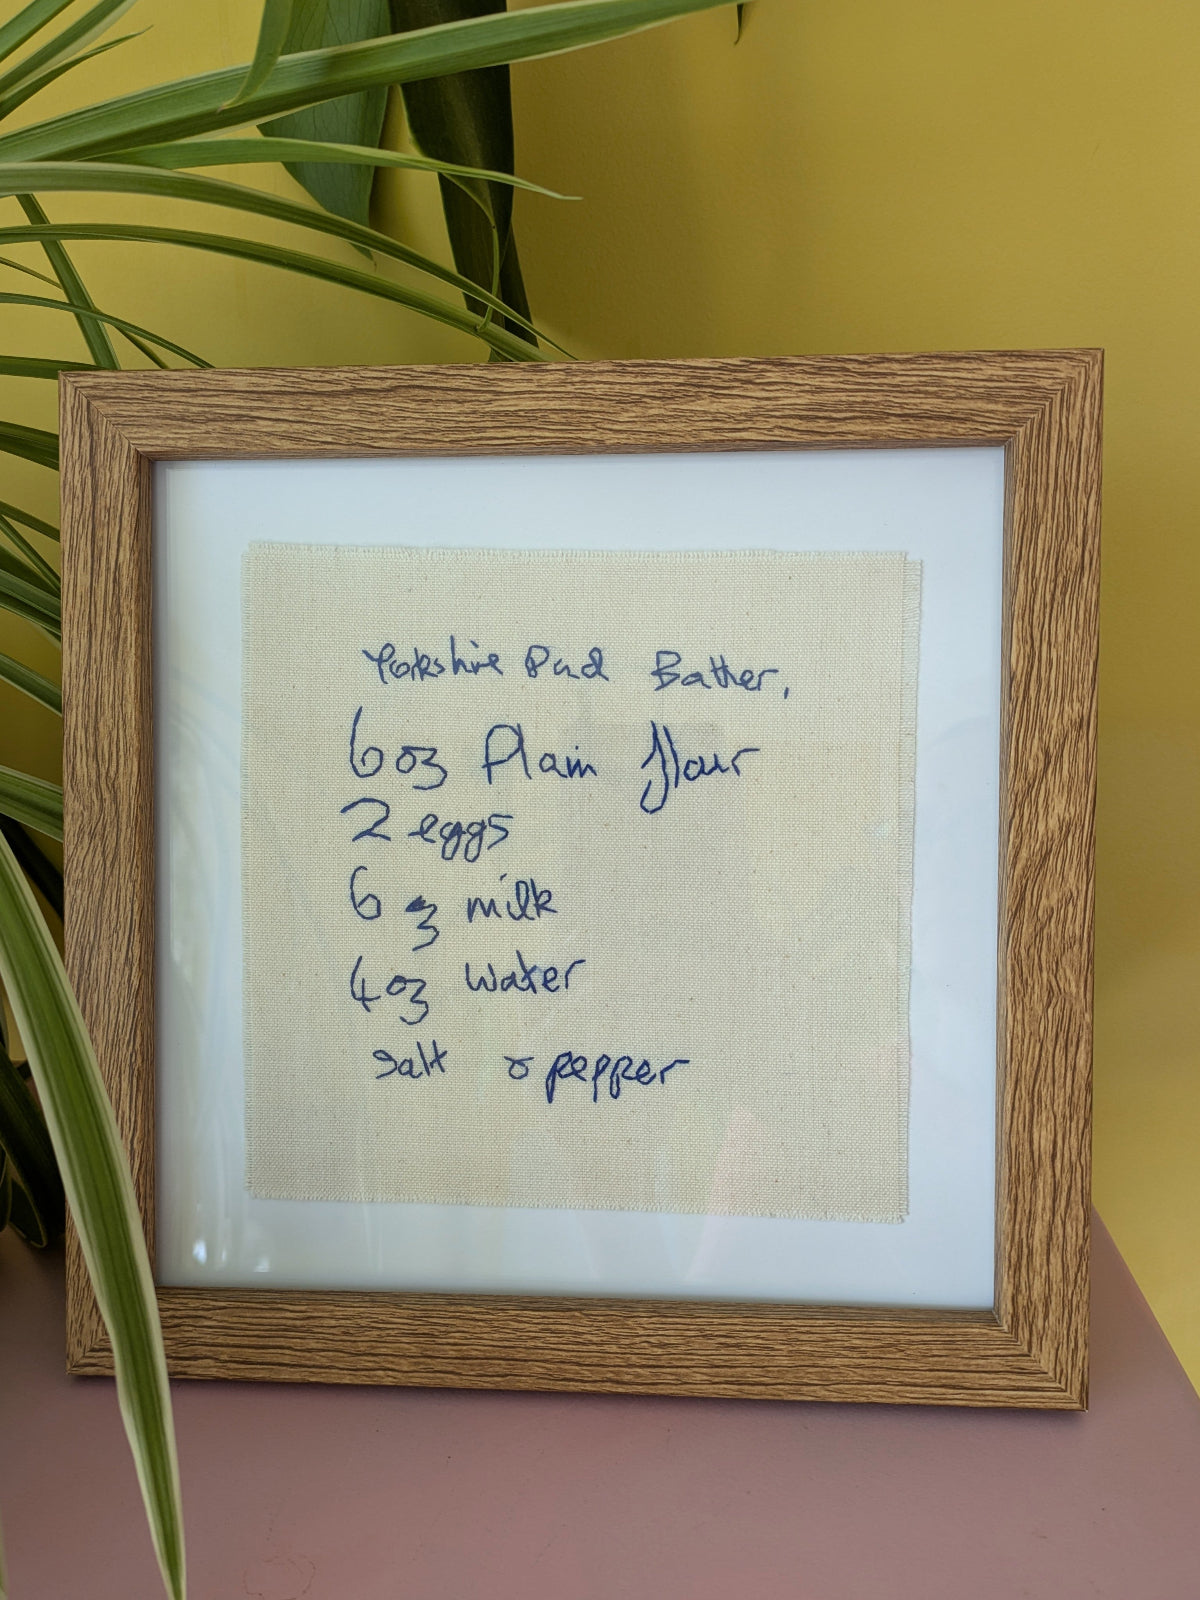 Yorkshire Pud Batter,
6oz Plain flour
2 eggs
6 oz milk
4oz water
salt & pepper